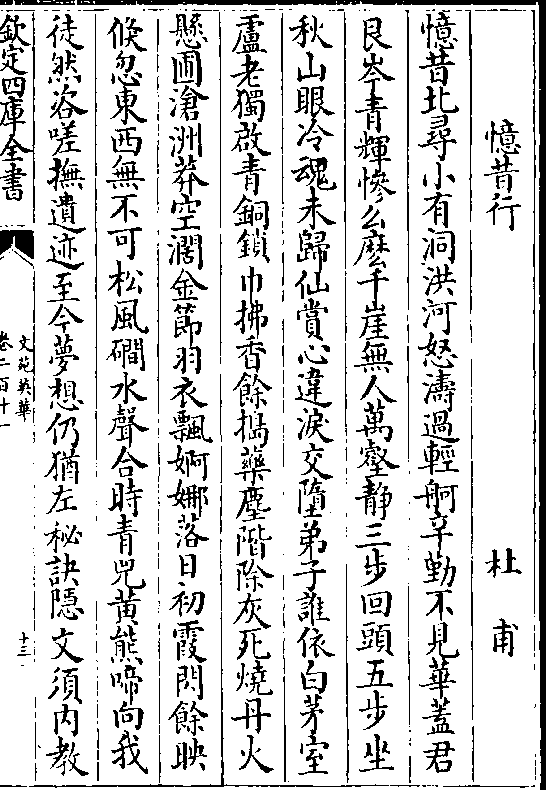 憶昔行　　　　　　　　　杜甫
憶昔北尋小有洞洪河怒濤過輕舸辛勤不見華蓋君
艮岑青輝慘么麽千崖無人萬壑静三步回頭五步坐
秋山眼冷魂未歸仙賞心違淚交墮弟子誰依白茅室
盧老獨啟青銅鎖巾拂香餘搗藥塵階除灰死燒丹火
懸圃滄洲莽空濶金節羽衣飄婀娜落日初霞閃餘映
倐忽東西無不可松風磵水聲合時青兕黄熊啼向我
徒然咨嗟撫遺迹至今夢想仍猶左秘訣隱文須内教
欽定四庫全書
文苑英華
卷二百十一
十三